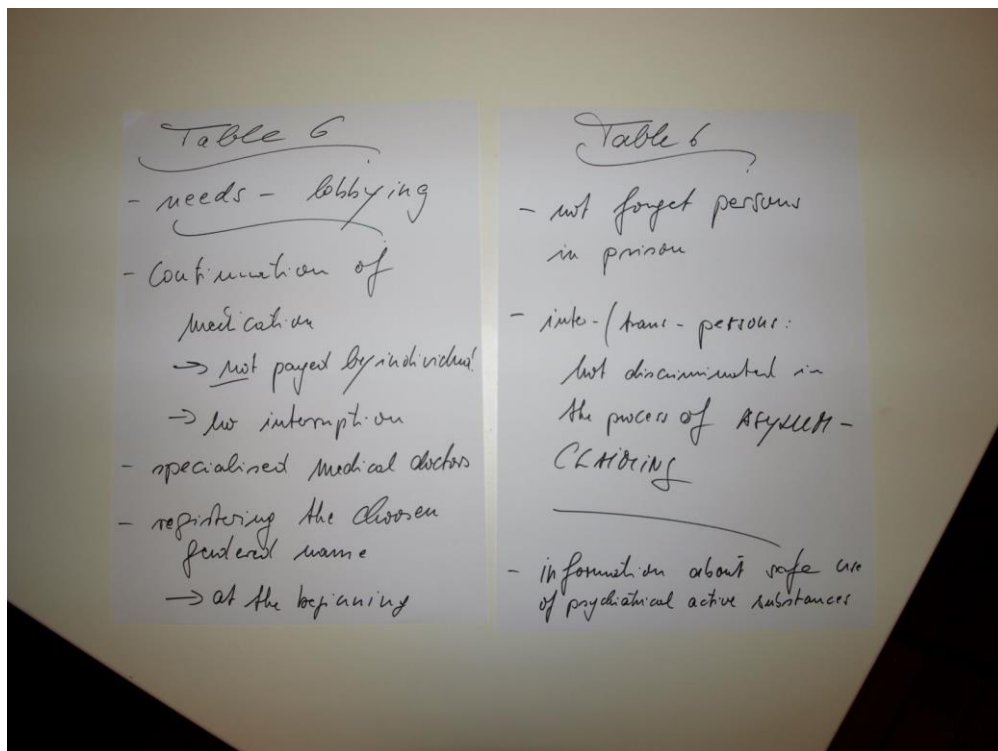 Table 6
- needs - lobbying
- continuation of
medication
→ not payed by individual
→ no interruption
- specialised medical doctors
- registering the choosen
gendered name
→ at the beginning
Table 6
- not forget persons
in prison
- inter-/trans-persons:
not discriminated in
the process of ASYLUM-
CLAIMING
- information about safe use
of psychiatrical active substances